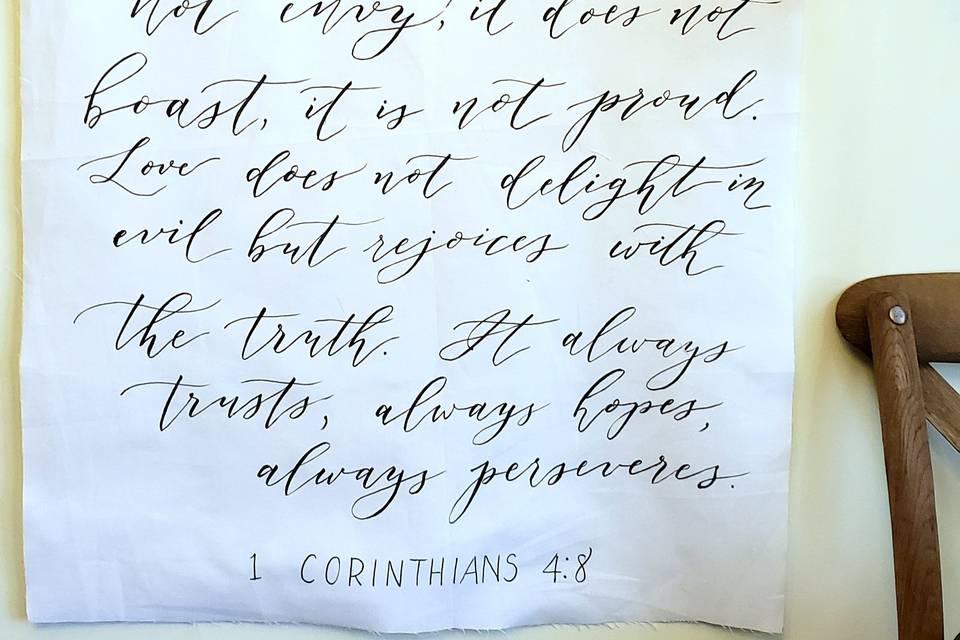 not envy, it does not
boast, it is not proud.
Love does not delight in
evil but rejoices with
the truth. It always
trusts, always hopes,
always perseveres.
1 CORINTHIANS 4:8